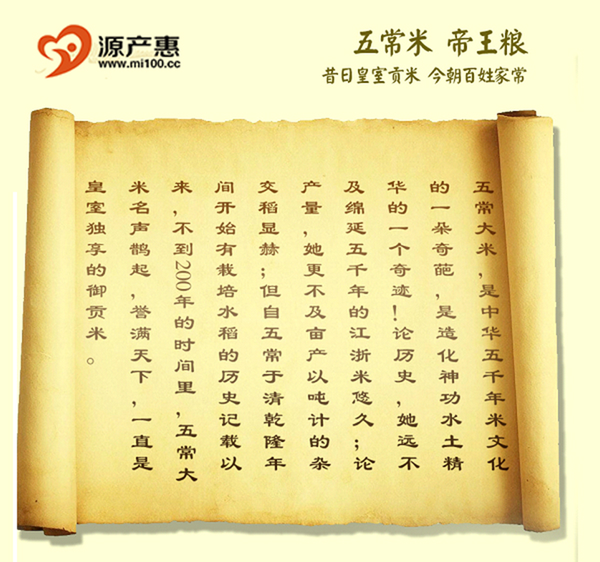 源产惠
www.mi100.cc
五常米 帝王粮
昔日皇室贡米 今朝百姓家常
五常大米，是中华五千年米文化
的一朵奇葩，是造化神功水土精
华的一个奇迹！论历史，她远不
及绵延五千年的江浙米悠久；论
产量，她更不及亩产以吨计的杂
交稻显赫；但自五常于清乾隆年
间开始有栽培水稻的历史记载以
来，不到200年的时间里，五常大
米名声鹊起，誉满天下，一直是
皇室独享的御贡米。